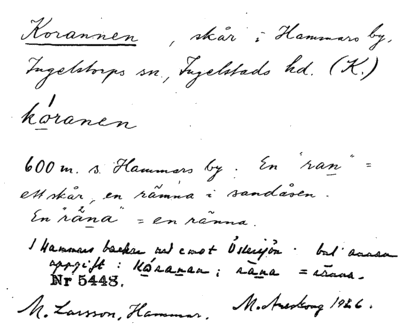 Korannen, skår i Hammars by.
Ingelstorps sn, Ingelstads hd. (K.)
kóranen
600 m. s. Hammars by. En "ran" =
ett skår, en rämna i sandåsen.
En "råna" = en ränna.
I Hammars backar ned emot Östersjön.
uppgift: ; rana =
Nr 5448.
M. Larsson, Hammar. M. 1926.